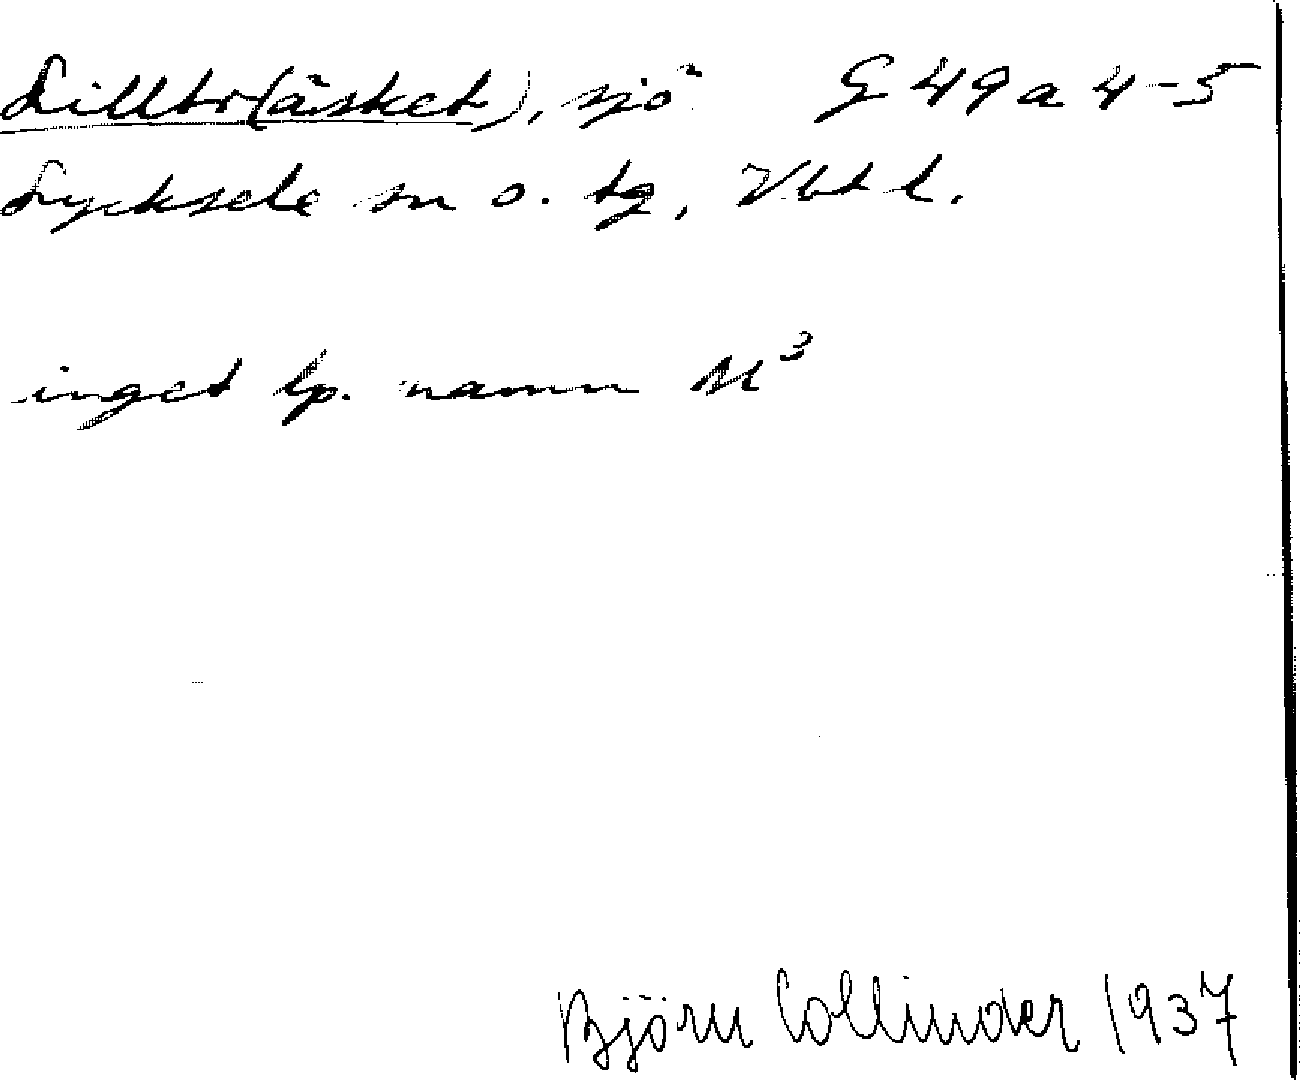 Lilltr(äsket), sjö G 49 a 4-5
Lycksele sn o. tg, Vbt l.
inget lp. namn M³
Björn Collinder 1937